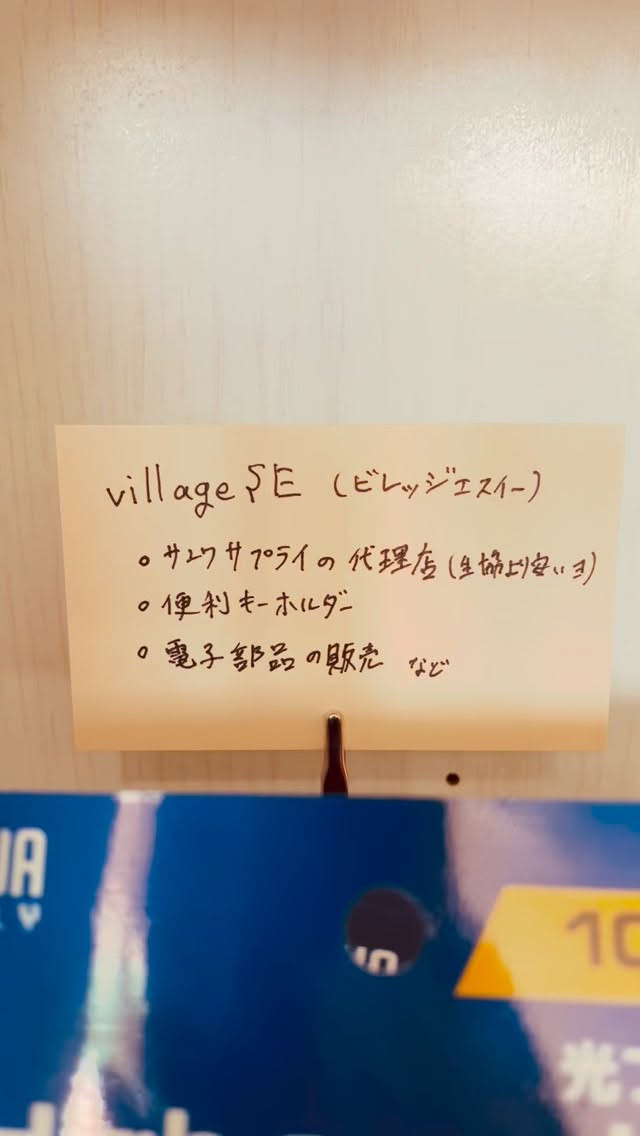 villageSE (ビレッジエスイー)
○ サンワサプライの代理店(生協より安いヨ)
○ 便利キーホルダー
○ 電子部品の販売 など
WA
10
10
光フ